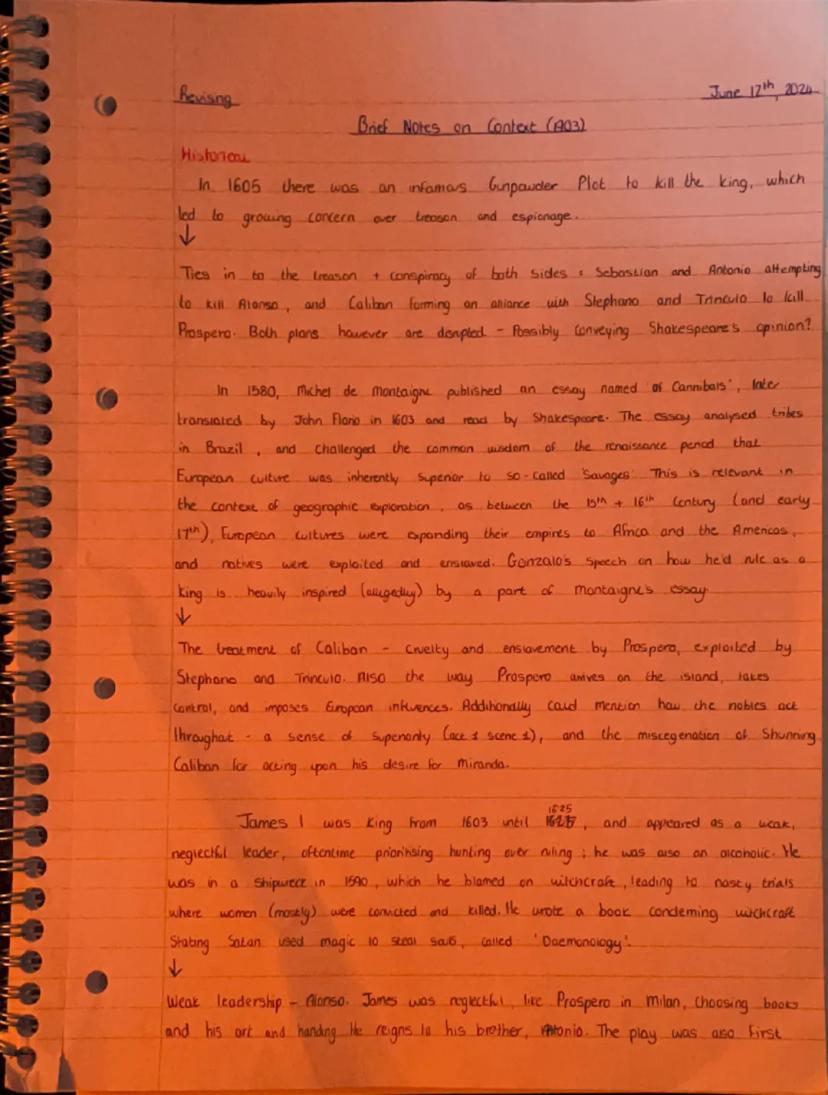 Revising
June 12th, 2024
Brief Notes on Context (AO3)
Historical
In 1605 there was an infamous Gunpowder Plot to kill the king, which
led to growing concern over treason and espionage.
↓
Ties in to the treason + conspiracy of both sides: Sebastian and Antonio attempting
to kill Alonso, and Caliban forming an alliance with Stephano and Trinculo to kill
Prospero. Both plans however are disrupted - Possibly conveying Shakespeare's opinion?
In 1580, Michel de Montaigne published an essay named 'of Cannibals', later
translated by John Florio in 1603 and read by Shakespeare. The essay analysed tribes
in Brazil, and challenged the common wisdom of the renaissance period that
European culture was inherently superior to so-called 'Savages'. This is relevant in
the context of geographic exploration, as between the 15th + 16th Century (and early
17th), European cultures were expanding their empires to Africa and the Americas,
and natives were exploited and enslaved. Gonzalo's speech on how he'd rule as a
king is heavily inspired (allegedly) by a part of montaigne's essay
↓
The treatment of Caliban - Cruelty and enslavement by Prospero, exploited by
Stephano and Trinculo. Also the way Prospero arrives on the island, takes
control, and imposes European influences. Additionally could mention how the nobles act
throughout - a sense of superiority (act 1 scene 1), and the miscegenation of shunning
Caliban for acting upon his desire for Miranda.
1625
James I was king from 1603 until, and appeared as a weak,
neglectful leader, oftentime prioritising hunting over ruling; he was also an alcoholic. He
was in a shipwreck in 1590, which he blamed on witchcraft, leading to nasty trials
where women (mostly) were convicted and killed. He wrote a book condeming witchcraft
Stating Satan used magic to steal souls, called 'Daemonology'.
↓
Weak leadership - Alonso. James was neglectful, like Prospero in Milan, choosing books
and his art and handing the reigns to his brother, Antonio. The play was also first